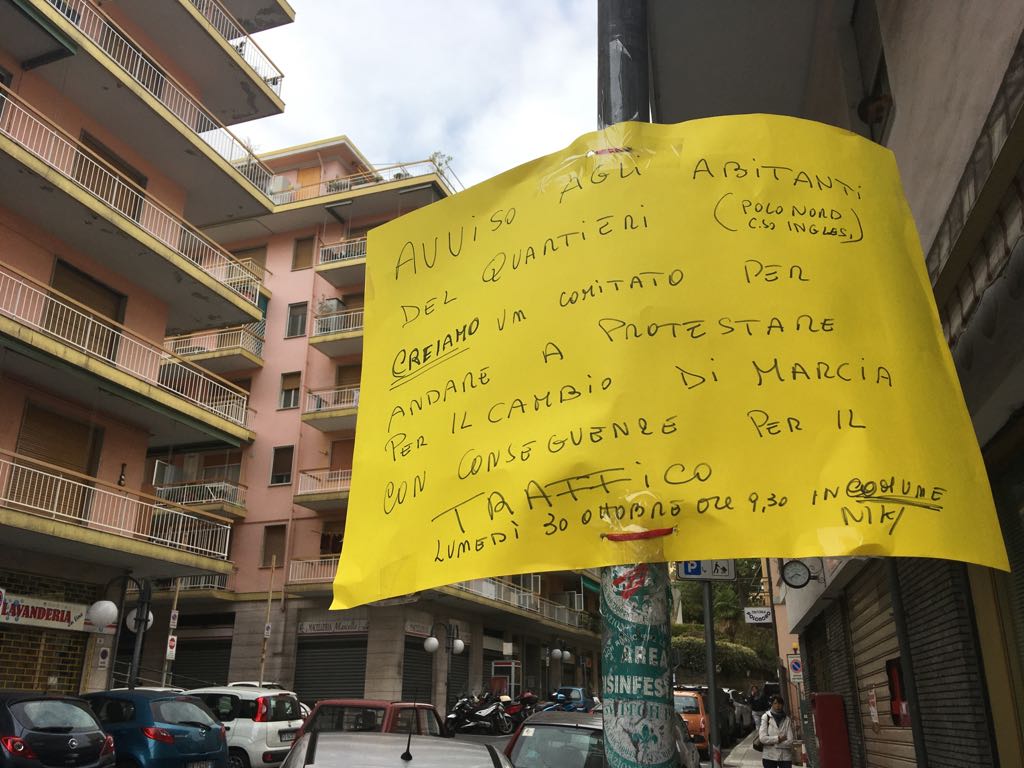 AVVISO AGLI ABITANTI
DEL QUARTIERI (POLO NORD
C.SO INGLES,)
CREIAMO UN COMITATO PER
ANDARE A PROTESTARE
PER IL CAMBIO DI MARCIA
CON CONSEGUENZE PER IL
TRAFFICO
LUMEDÌ 30 OTTOBRE ORE 9,30 IN COMUNE
NIK/
LAVANDERIA
MACELLERIA Marcello
P
AREA
DISINFES